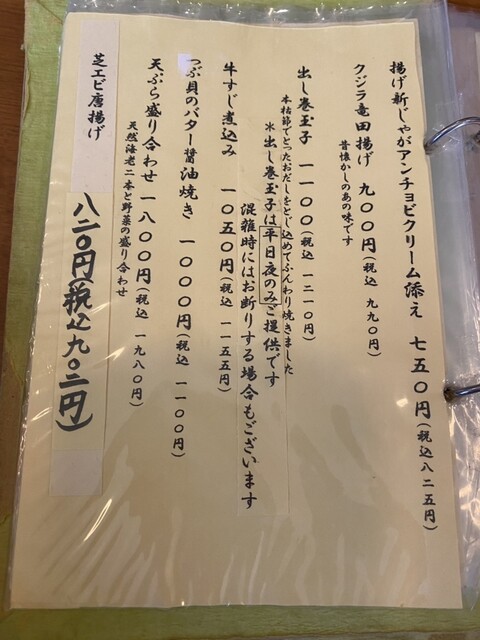 揚げ新じゃがアンチョビクリーム添え 七五〇円(税込八二五円)
クジラ竜田揚げ 九〇〇円(税込 九九〇円)
昔懐かしのあの味です
出し巻玉子 一一〇〇(税込 一二一〇円)
本枯節でとったおだしをとじ込めてふんわり焼きました
※出し巻玉子は平日夜のみご提供です
混雑時にはお断りする場合もございます
牛すじ煮込み 一〇五〇円(税込 一一五五円)
つぶ貝のバター醤油焼き 一〇〇〇円(税込 一一〇〇円)
天ぷら盛り合わせ 一八〇〇円(税込 一九八〇円)
天然海老二本と野菜の盛り合わせ
芝エビ唐揚げ 八二〇円(税込九〇二円)